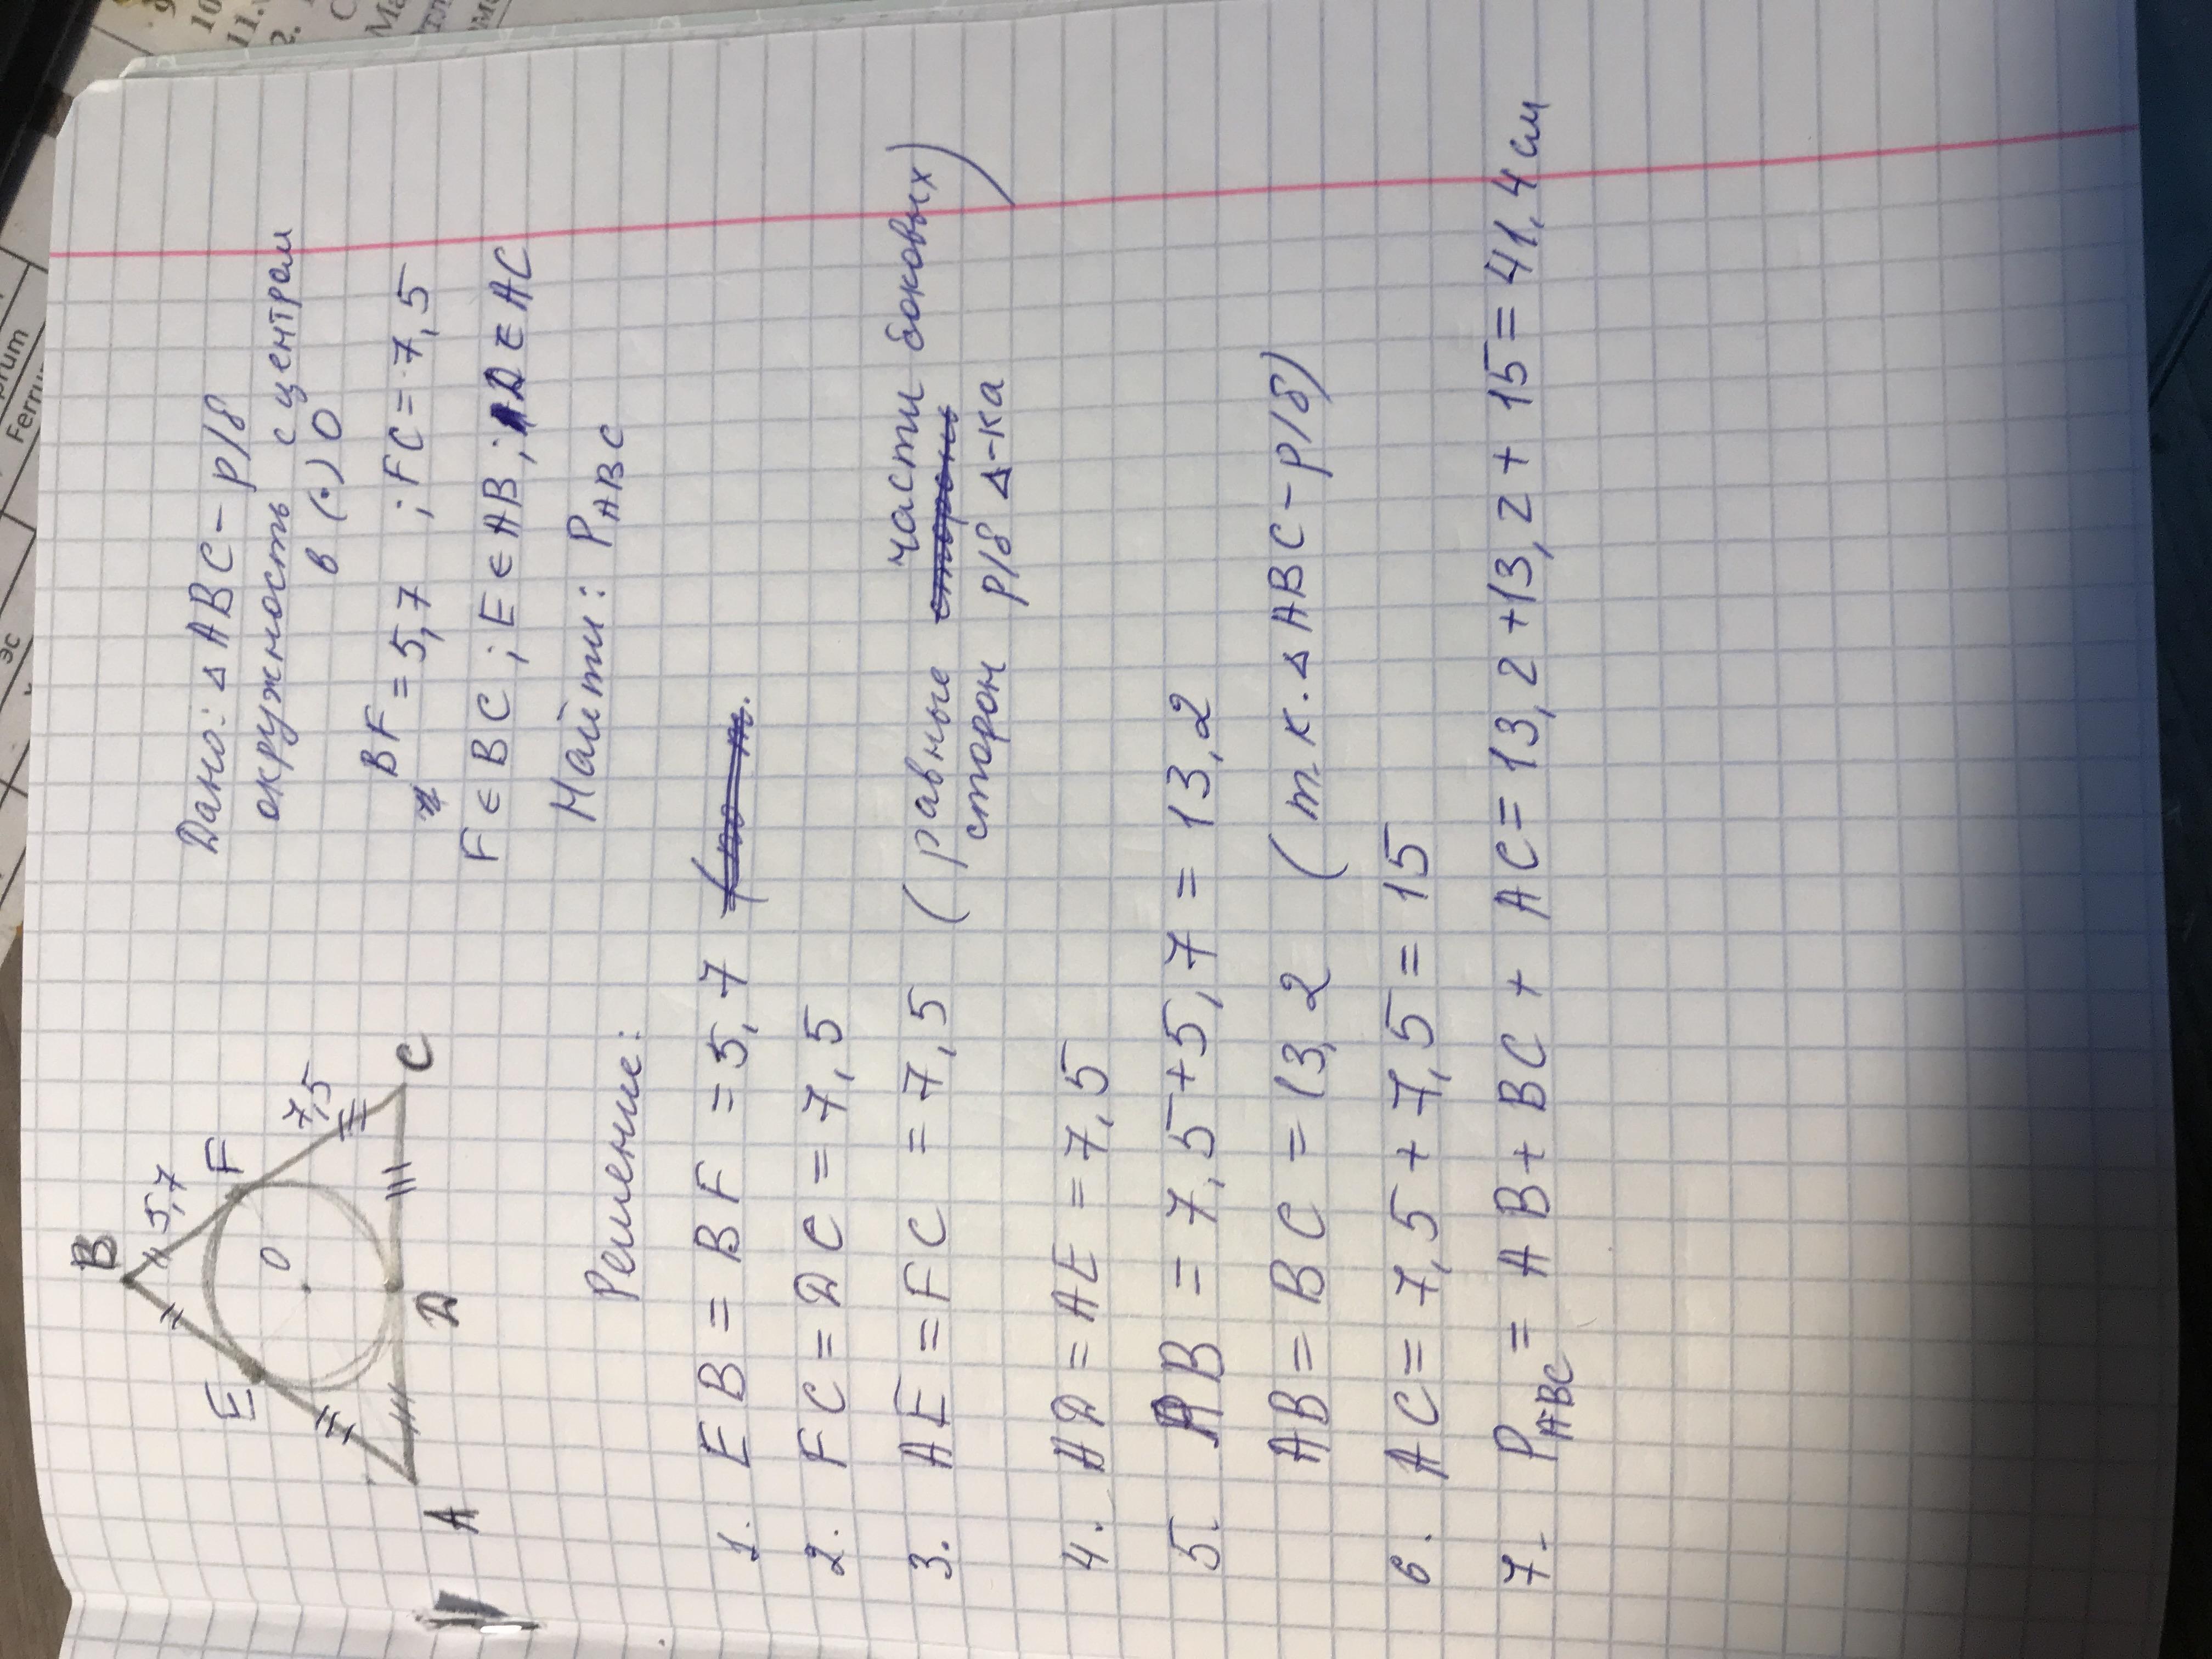 B
5,7
E
F
O
7,5
A
D
C
Дано: △ ABC - р/б
окружность с центром
в (·) O
BF = 5,7 ; FC = 7,5
F ∈ BC ; E ∈ AB ; D ∈ AC
Найти: P ABC
Решение:
1. EB = BF = 5,7
2. FC = DC = 7,5
3. AE = FC = 7,5 (равные части боковых)
сторон р/б △-ка
4. AD = AE = 7,5
5. AB = 7,5 + 5,7 = 13,2
AB = BC = 13,2 (т.к. △ ABC - р/б)
6. AC = 7,5 + 7,5 = 15
7. P ABC = AB + BC + AC = 13,2 + 13,2 + 15 = 41,4 см
Ferru
эс
10
11.
2.